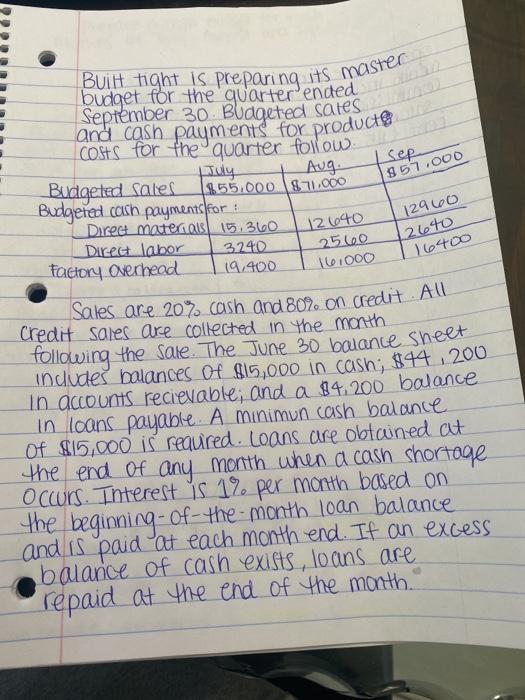 Built tight is preparing its master
budget for the quarter ended
September 30. Budgeted sales
and cash payments for products
costs for the quarter follow.
July Aug. Sep.
Budgeted Sales $55,000 $71,000 $57,000
Budgeted cash payments for :
Direct materials 15,360 12640 12960
Direct labor 3240 2560 2640
Factory overhead 19,400 16,000 16400
Sales are 20% cash and 80% on credit. All
credit sales are collected in the month
following the sale. The June 30 balance sheet
includes balances of $15,000 in cash; $44,200
in accounts recievable; and a $4,200 balance
in loans payable. A minimun cash balance
of $15,000 is required. Loans are obtained at
the end of any month when a cash shortage
occurs. Interest is 1% per month based on
the beginning-of-the-month loan balance
and is paid at each month end. If an excess
balance of cash exists, loans are
repaid at the end of the month.